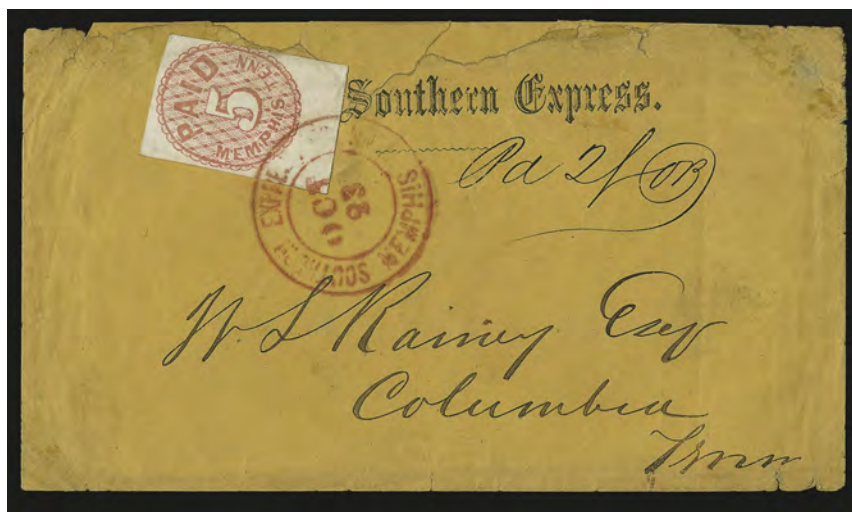 PAID
5
MEMPHIS, TENN.
Southern Express.
Pd 2/
SOUTH EXPRE MEMPHIS
OCT
23
W. S. Rainey Esqr
Columbia
Tenn